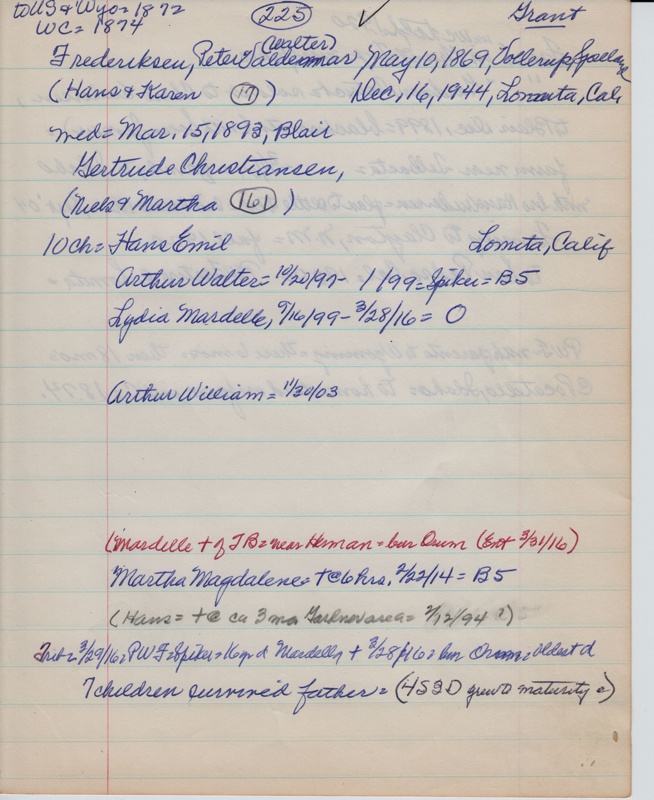 to US & Wyo = 1872
225
Grant
WC = 1874
(Walter)
Frederiksen, Peter Waldemar May 10, 1869, Vollerup, Sjaelland
(Hans & Karen 17) Dec, 16, 1944, Lomita, Cal,
med = Mar. 15, 1893, Blair
Gertrude Christiansen,
(Niels & Martha 161)
10 ch = Hans Emil Lomita, Calif
Arthur Walter = 10/20/97 - 1/99 = Spiker = B5
Lydia Mardelle, 9/16/99 - 3/28/16 = O
Arthur William = 11/30/03
(Mardelle + of TB = near Herman = bur Orum (Ent 3/31/16)
Martha Magdalene = + @ 6 hrs, 2/22/14 = B5
(Hans = + @ ca 3 mo area = 2/12/94 ?)
3/29/16: PWF = Spiker = 16 yr d Mardelle + 3/28/16 = bur Orum = oldest d
7 children survived father = (4S 3D grew to maturity)